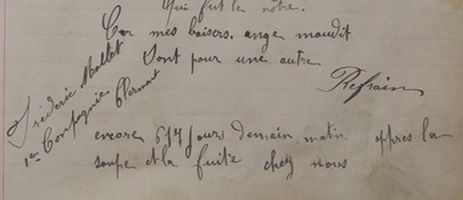 Qui fut le nôtre.
Car mes baisers. ange maudit
Sont pour une autre
Refrain
Frédéric Mallet
1re Compagnie Clermont
encore 614 Jours Demain matin apres la
soupe et la fuite chez nous